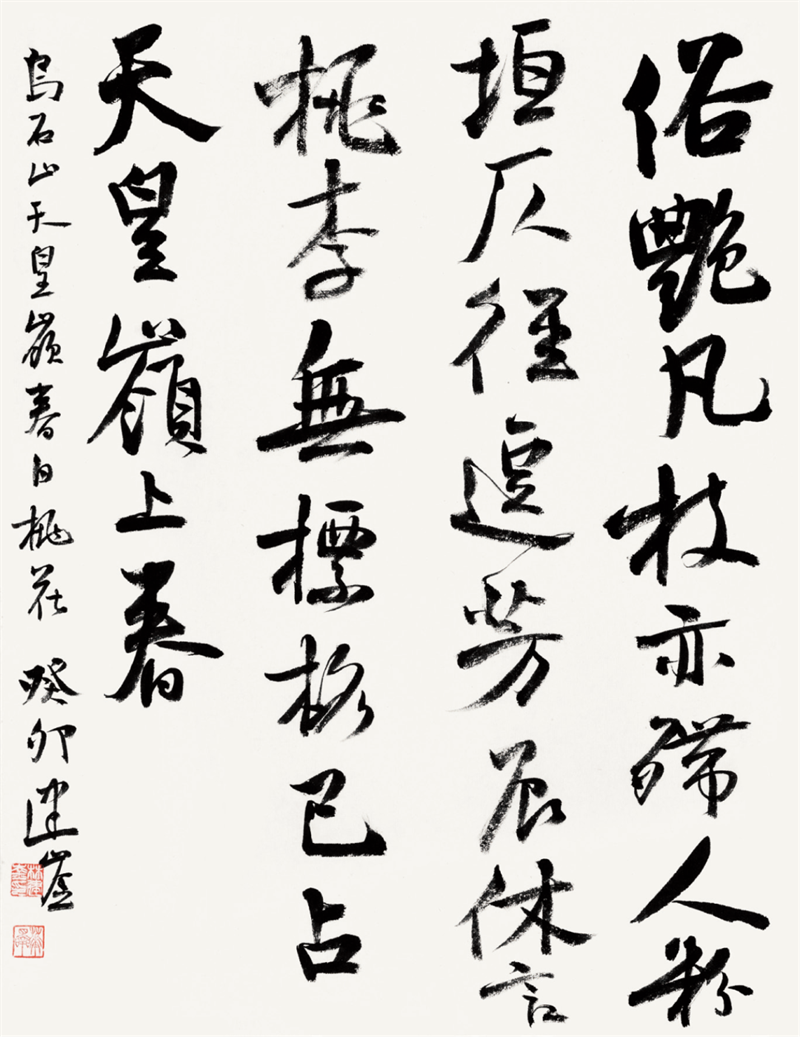 俗艷凡枝亦殢人粉
垣仄徑逗芳辰休言
桃李無標格已占
天皇嶺上春
烏石山天皇嶺春日桃花 癸卯建